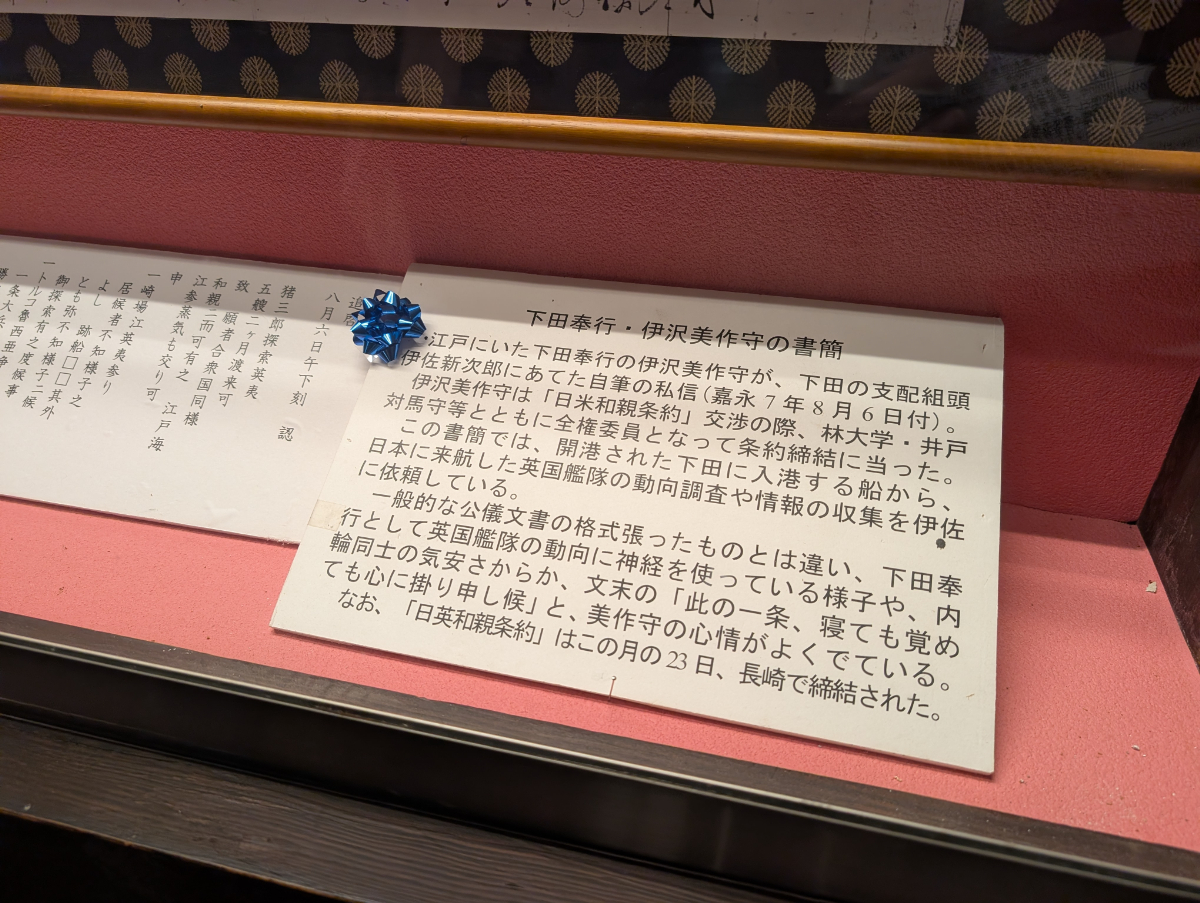 下田奉行・伊沢美作守の書簡
江戸にいた下田奉行の伊沢美作守が、下田の支配組頭
伊佐新次郎にあてた自筆の私信(嘉永7年8月6日付)。
伊沢美作守は「日米和親条約」交渉の際、林大学・井戸
対馬守等とともに全権委員となって条約締結に当った。
この書簡では、開港された下田に入港する船から、
日本に来航した英国艦隊の動向調査や情報の収集を伊佐
に依頼している。
一般的な公儀文書の格式張ったものとは違い、下田奉
行として英国艦隊の動向に神経を使っている様子や、内
輪同士の気安さからか、文末の「此の一条、寝ても覚め
ても心に掛り申し候」と、美作守の心情がよくでている。
なお、「日英和親条約」はこの月の23日、長崎で締結された。
追啓
八月六日午下刻 認
猪三郎探索英夷
五艘二ヶ月渡来可
致 願者合衆国同様
和親二而可有之 江戸海
江参蒸気も交り可
申
一 崎場江英夷参り
居候者不知様子
よし 跡船□□其外
とも弥不知様子之
御探索有之度候事
一 トルコ魯西亜